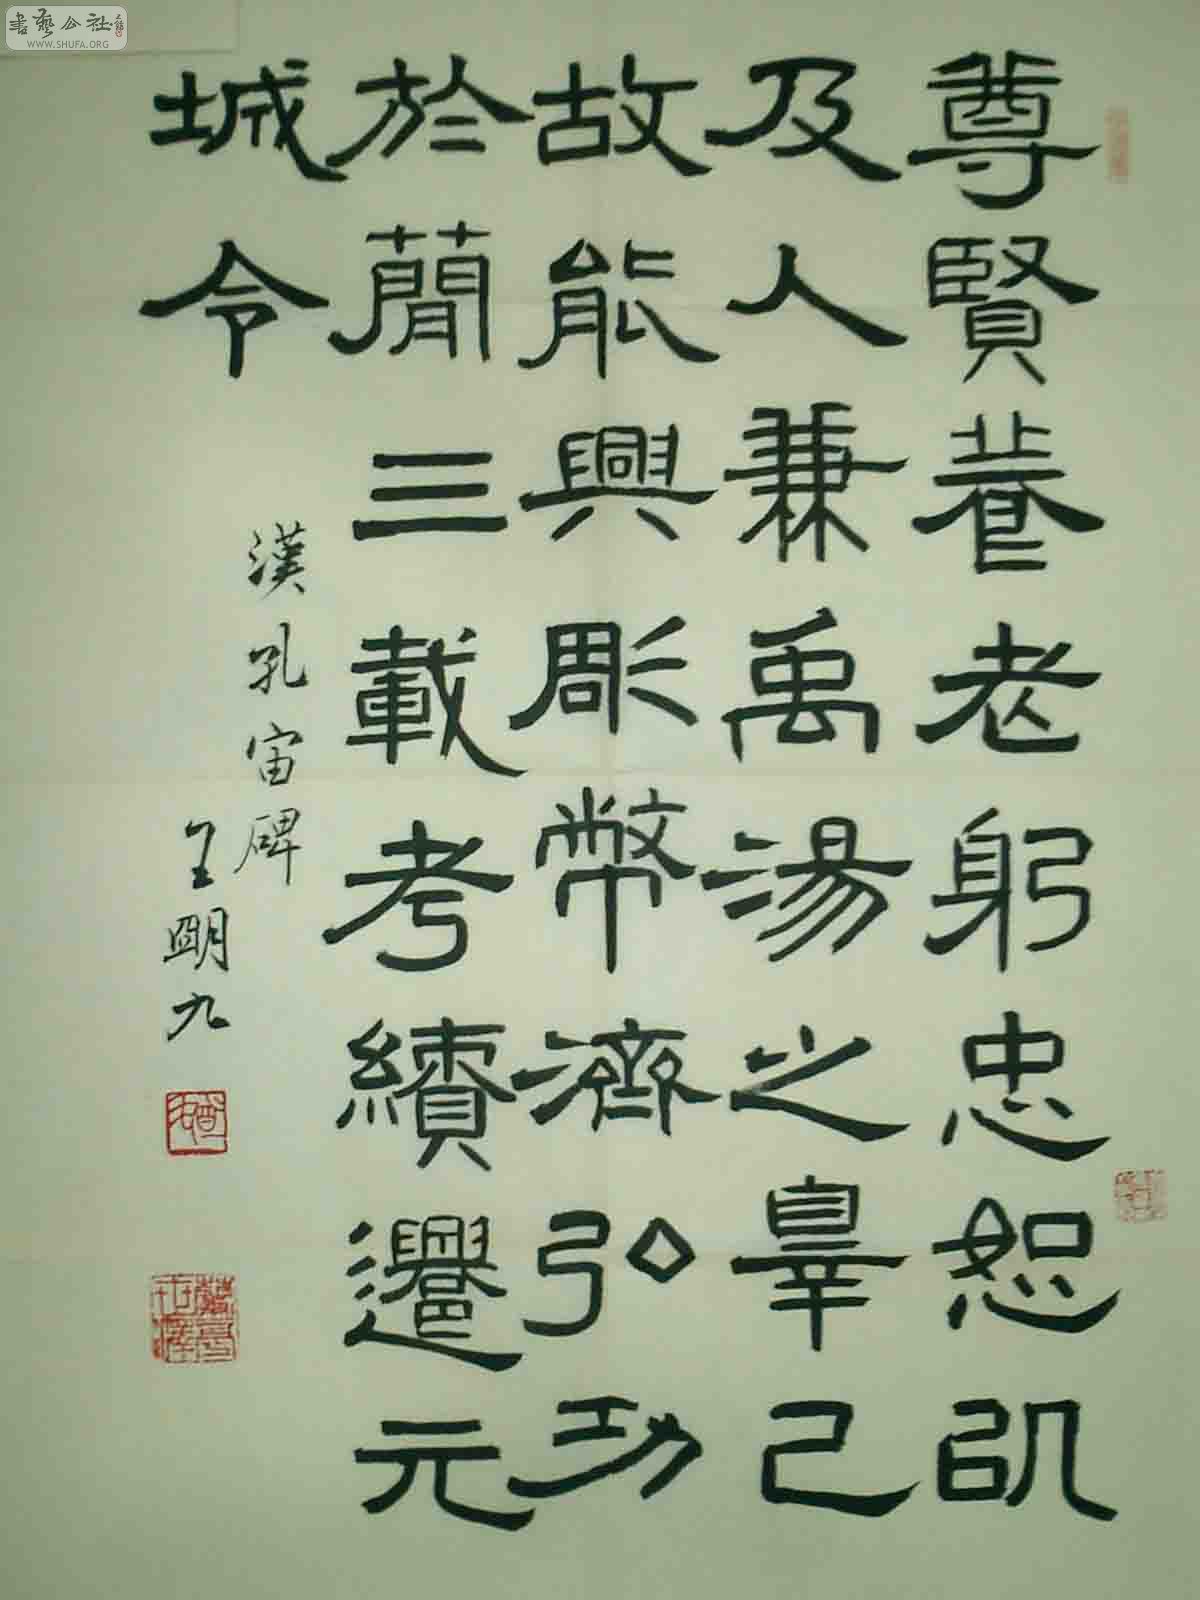 書藝公社
WWW.SHUFA.ORG
尊賢養老躬忠恕以
及人兼禹湯之辠己
故能興彫幣濟弘功
於蕳三載考績遷元
城令
漢孔宙碑
王朙九